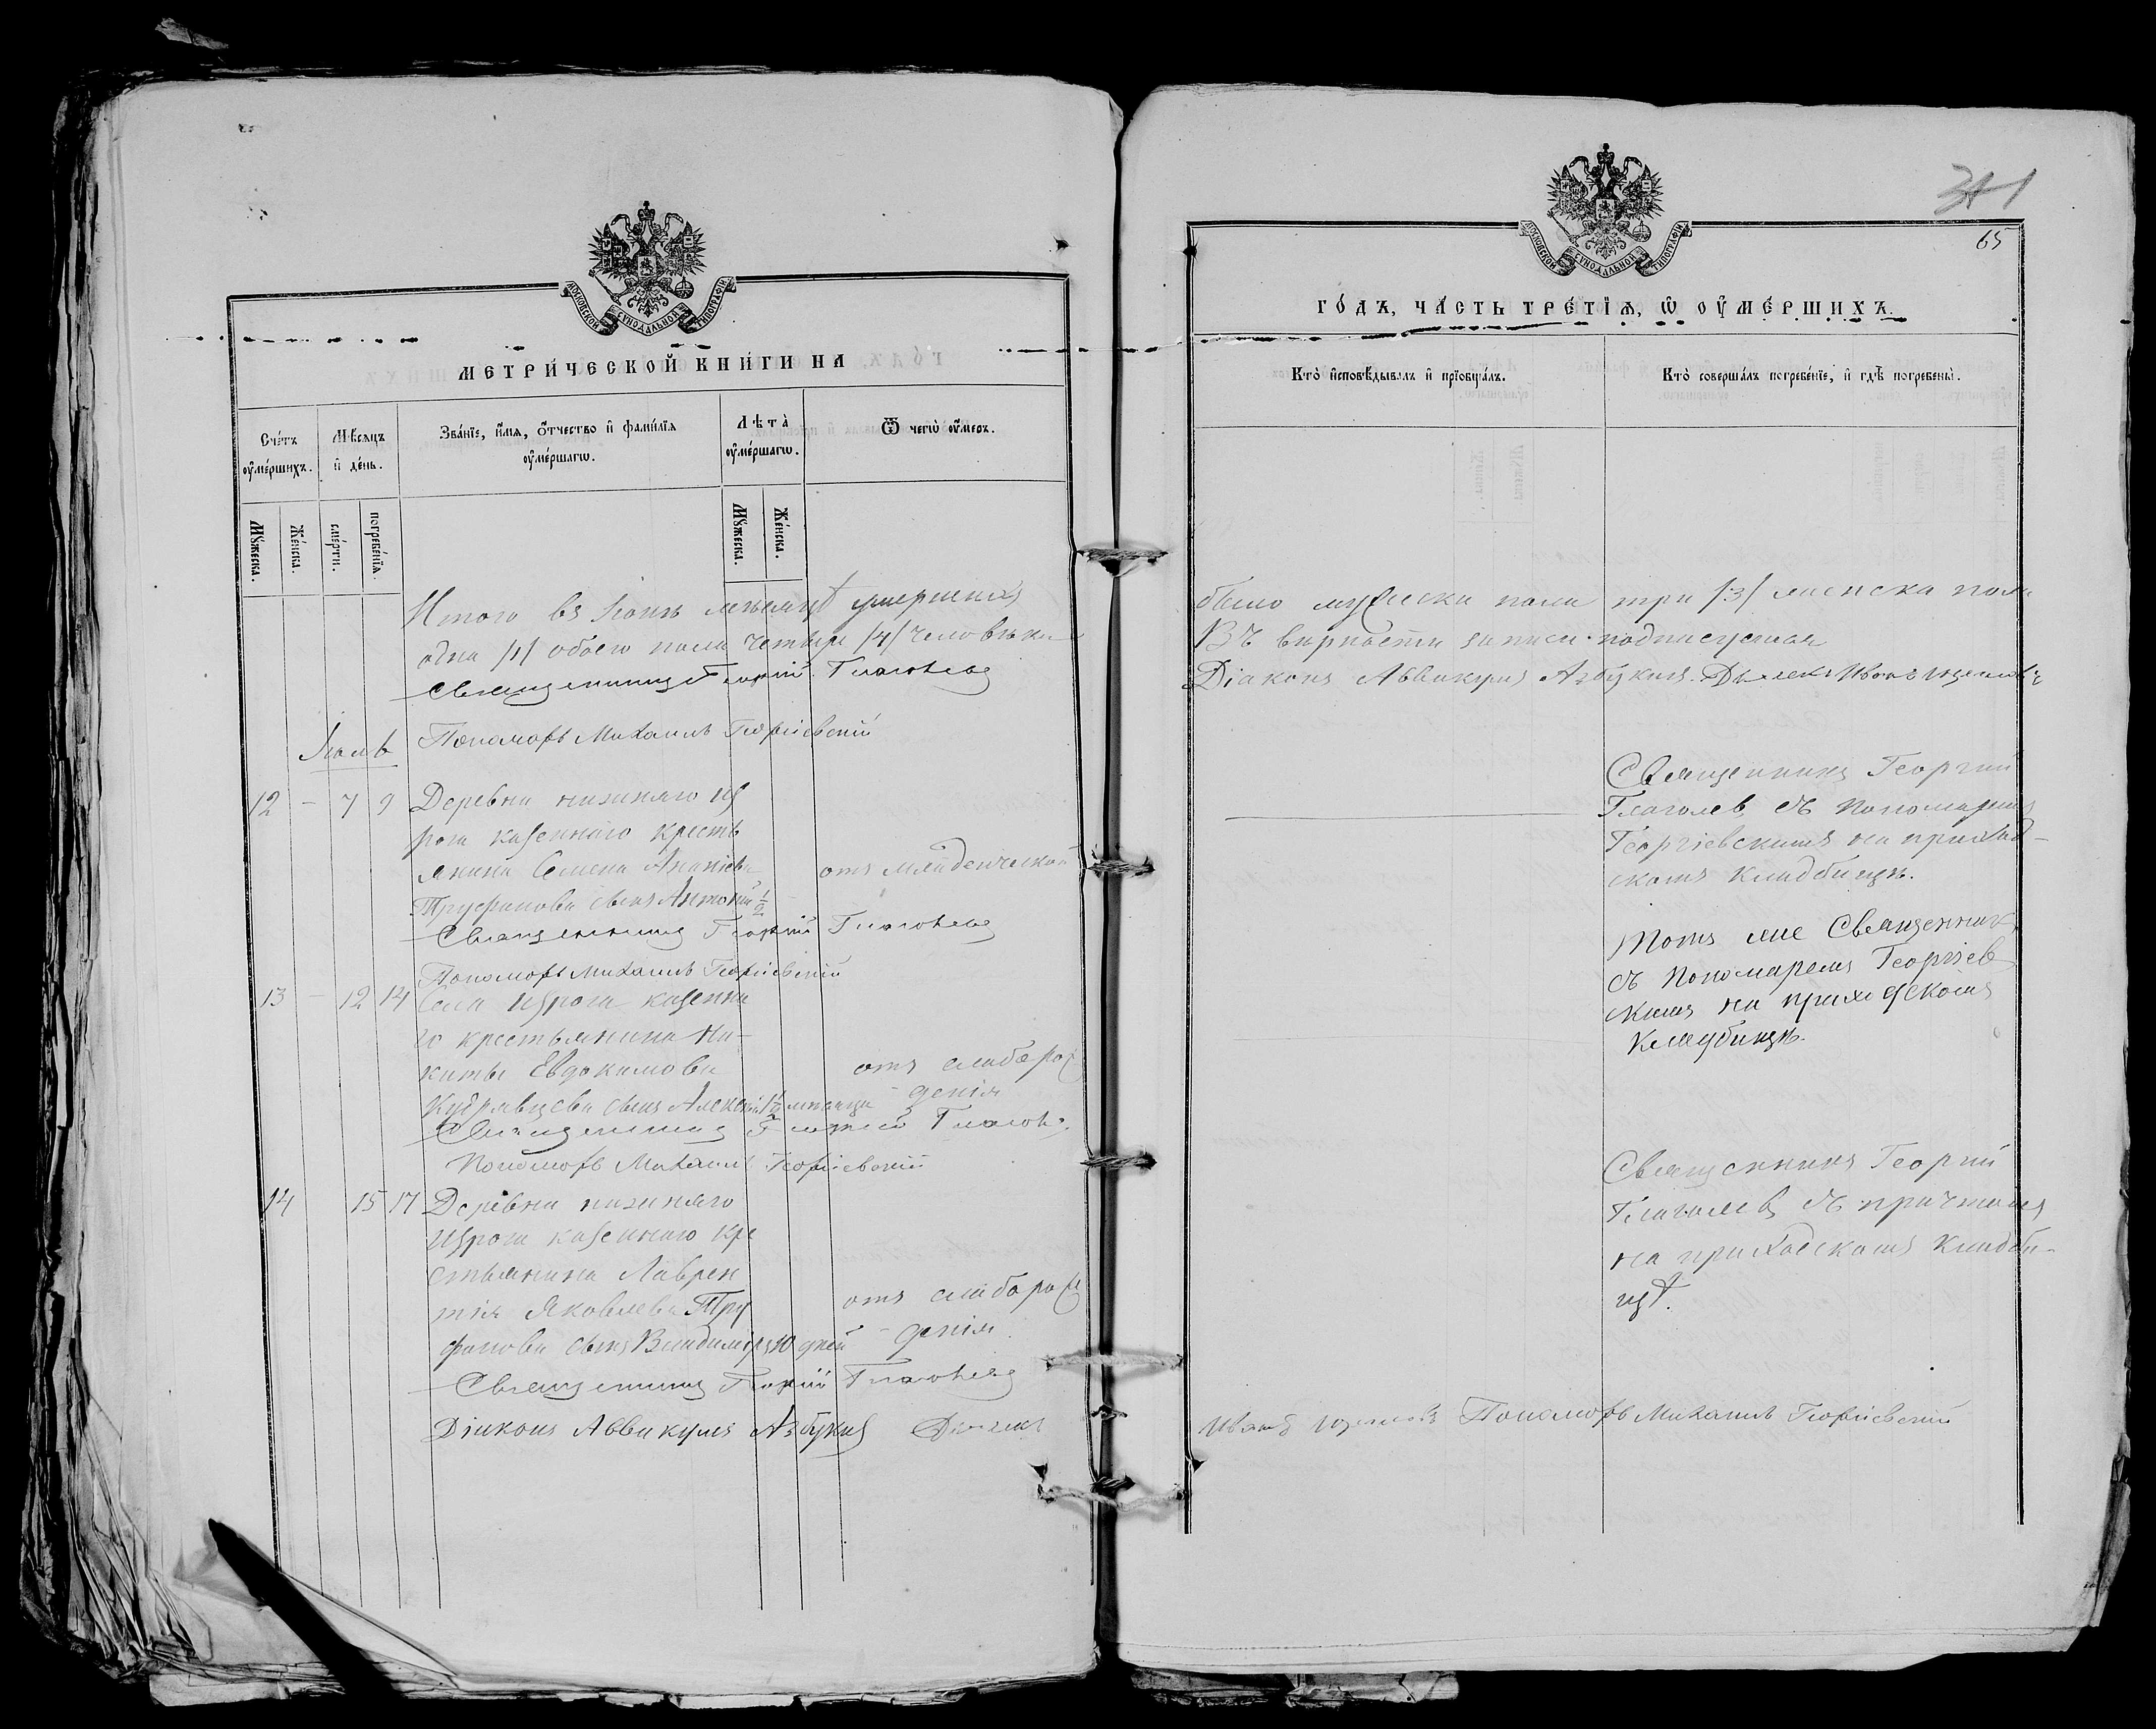 МОСКОВСКОЙ СѴНОДАЛЬНОЙ ТИПОГРАФІИ
МЕТРИ́ЧЕСКОЙ КНИ́ГИ НА
Сче́тъ ᲂу҆ме́ршихъ.
Мѣ́сѧцъ и҆ де́нь.
Зва́нїе, и҆́мѧ, ѻ҆́тчество и҆ фамі́лїѧ ᲂу҆ме́ршагѡ.
Лѣта̀ ᲂу҆ме́ршагѡ.
Ѿ чегѡ̀ ᲂу҆́меръ.
Мꙋ́жеска.
Же́нска.
сме́рти.
погребе́нїѧ.
Мꙋ́жеска.
Же́нска.
Итого въ Іюнѣ мѣсяцѣ умершихъ
одна /1/ обоего пола четыре /4/ человѣка
Священникъ Георгій Глаголевъ
Пономарь Михаилъ Георгіевскій
Іюль
12 - 7 9 Деревни нижняго Из
рога казеннаго кресть
янина Семена Ананіева
Труфанова сынъ Антоній 1/2
отъ младенческой
Священникъ Георгій Глаголевъ
Пономарь Михаилъ Георгіевскій
13 - 12 14 Села Изрога казенна
го крестьянина Ни-
киты Евдокимова
Кудрявцева сынъ Алексій 1 1/2 мѣсяца
отъ слаборож
денія
Священникъ Георгій Глаголевъ
Пономарь Михаилъ Георгіевскій
14 15 17 Деревни нижняго
Изрога казеннаго кре
стьянина Лаврен
тія Яковлева Тру
фанова сынъ Владиміръ 10 дней
отъ слаборож
денія
Священникъ Георгій Глаголевъ
Діаконъ Аввакумъ Азбукинъ Дьячекъ
341
65
МОСКОВСКОЙ СѴНОДАЛЬНОЙ ТИПОГРАФІИ
ГО́ДЪ, ЧА́СТЬ ТРЕ́ТЇѦ, Ѡ҆ ОУ҆МЕ́РШИХЪ.
Кто̀ и҆сповѣ́дывалъ и҆ прїѡбща́лъ.
Кто̀ соверша́лъ погребе́нїе, и҆ гдѣ̀ погребены̀.
было мужеска пола три /3/ женска пола
Въ вѣрности записи подписуемся
Діаконъ Аввакумъ Азбукинъ. Дьячекъ Иванъ
Священникъ Георгій
Глаголевъ съ Пономаремъ
Георгіевскимъ на приход-
скомъ кладбищѣ.
Тотъ же Священникъ
съ Пономаремъ Георгіев
скимъ на приходскомъ
кладбищѣ.
Священникъ Георгій
Глаголевъ съ причтомъ
на приходскомъ кладби-
щѣ.
Иванъ Пономарь Михаилъ Георгіевскій